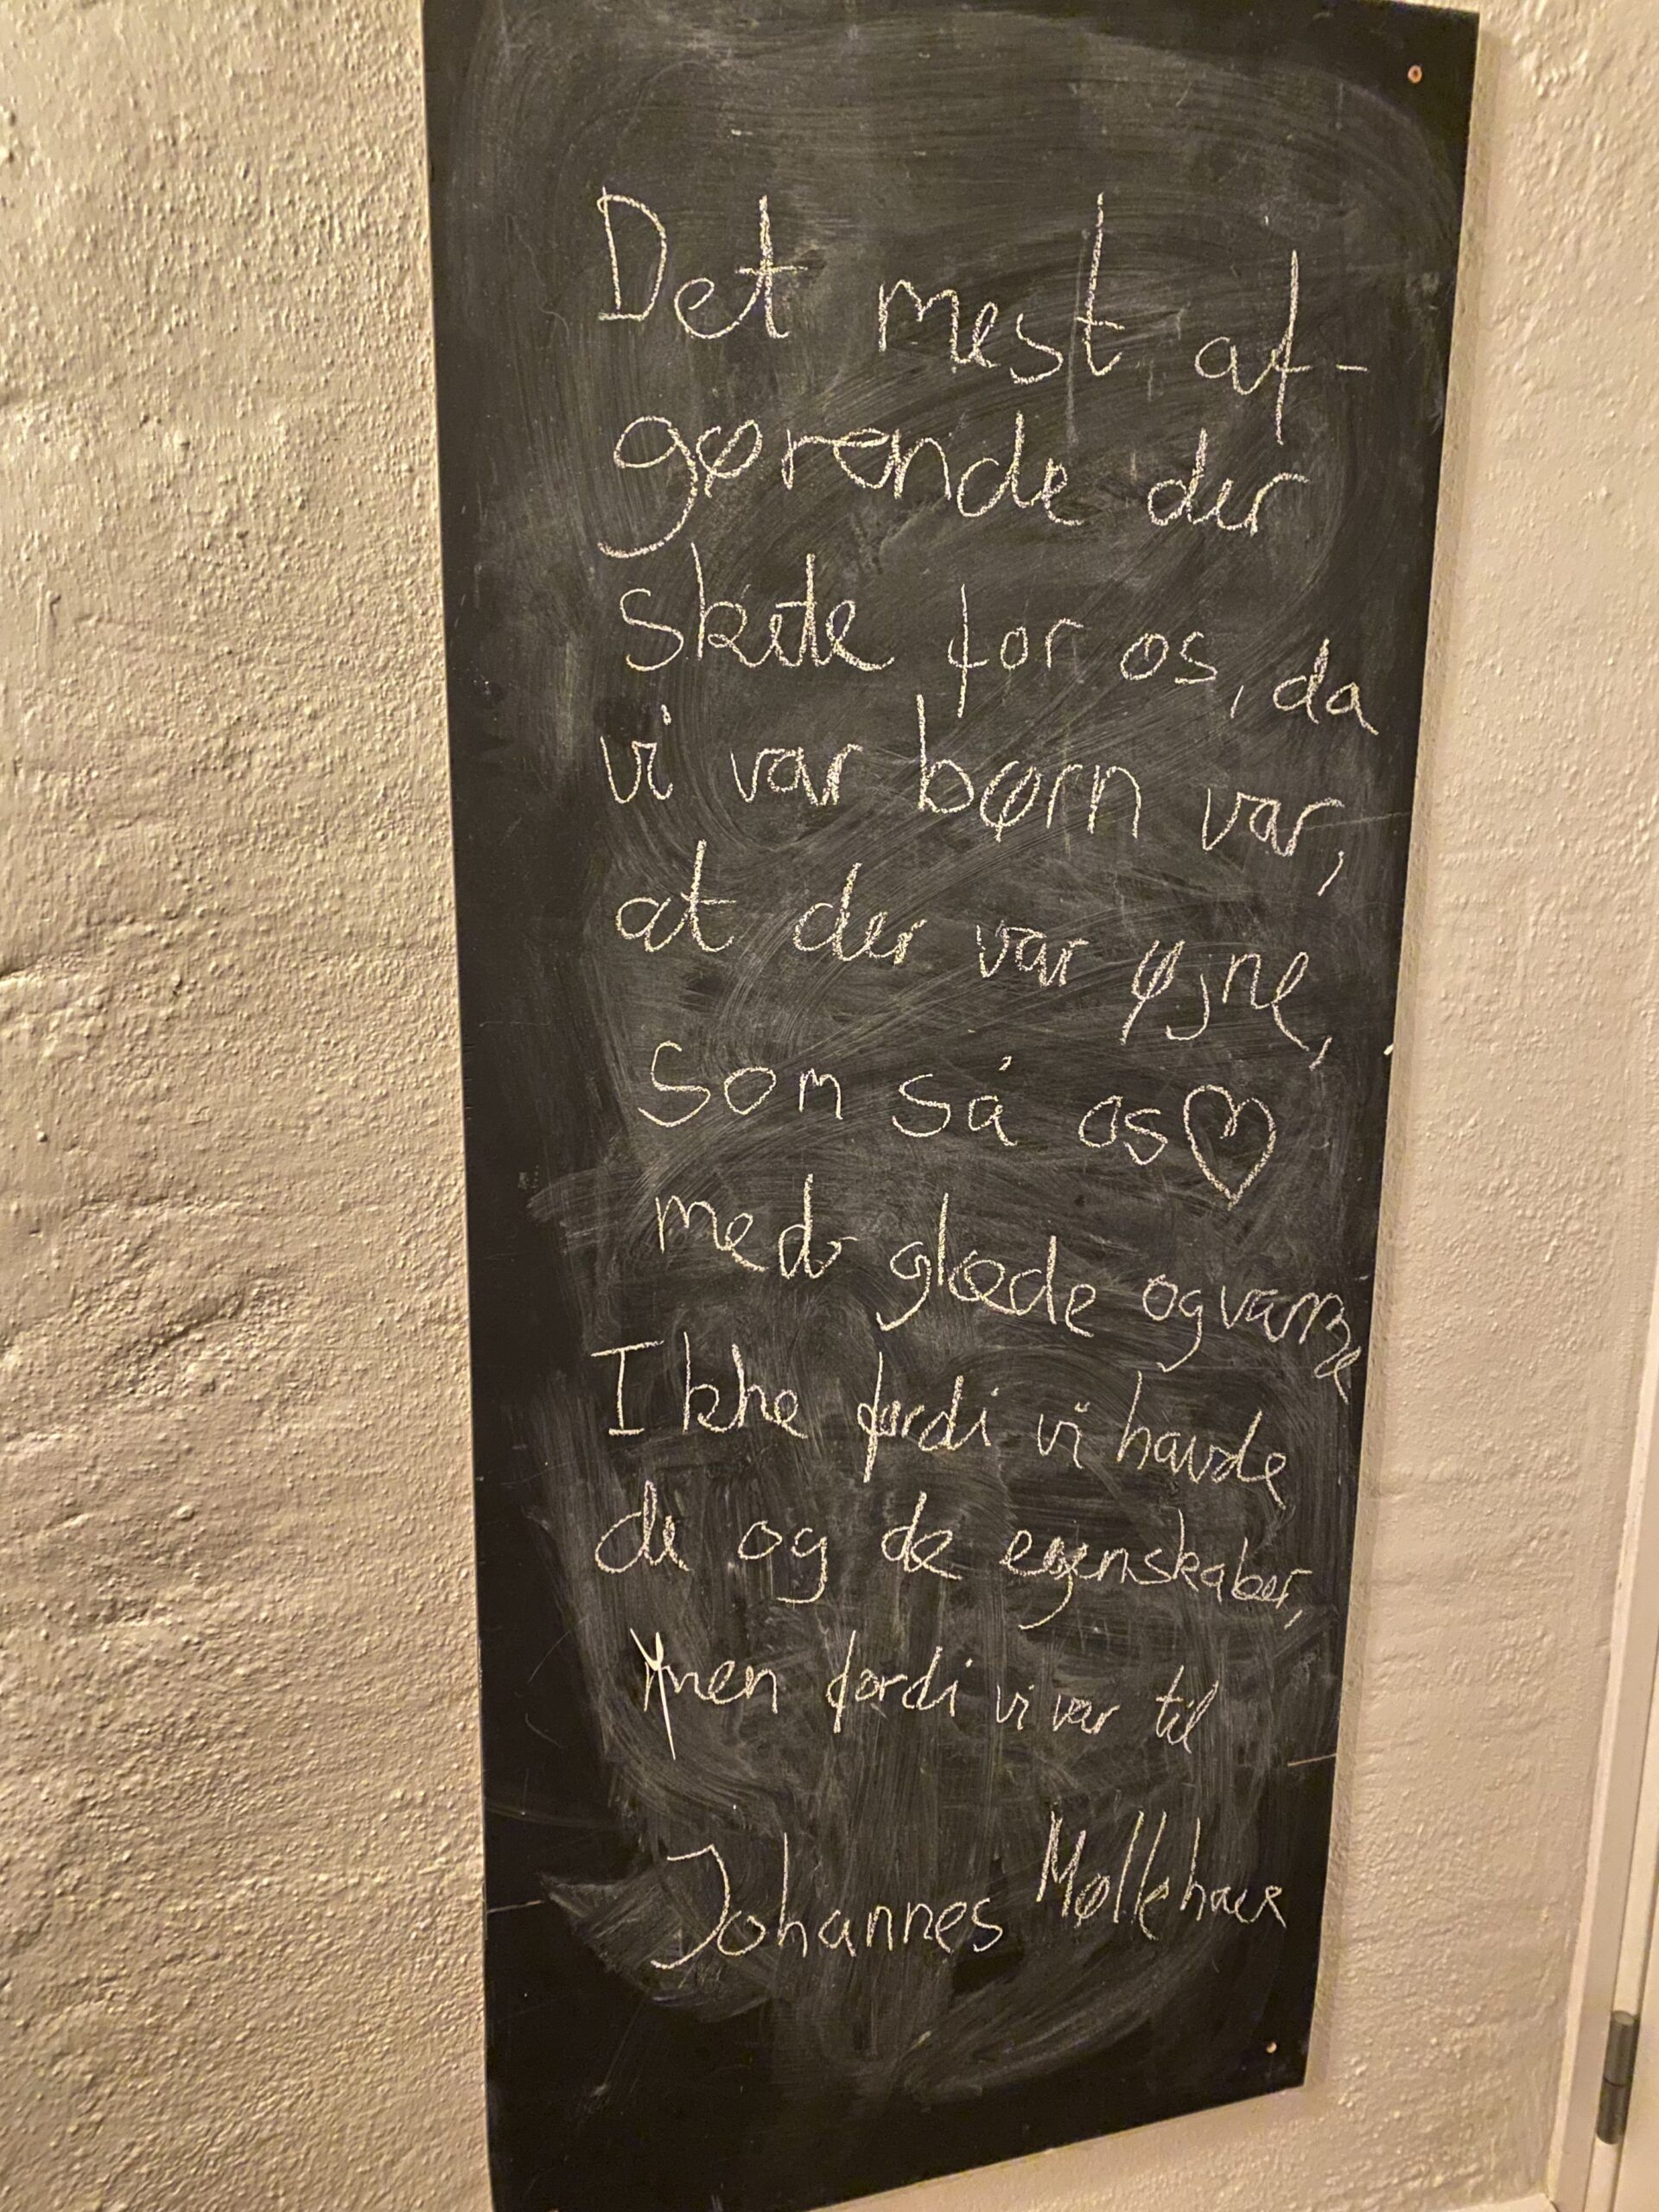 Det mest af-
gørende der
skete for os, da
vi var børn var,
at der var øjne,
som så os
med glæde og varme
Ikke fordi vi havde
de og de egenskaber,
men fordi vi var til
Johannes Møllehave